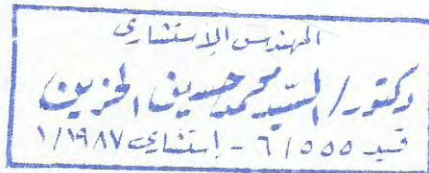 المهندس الإستشارى
دكتور/ السيد محمد حسين الحزين
قيد ٦/٥٥٥ - إستشارى ١/١٩٨٧